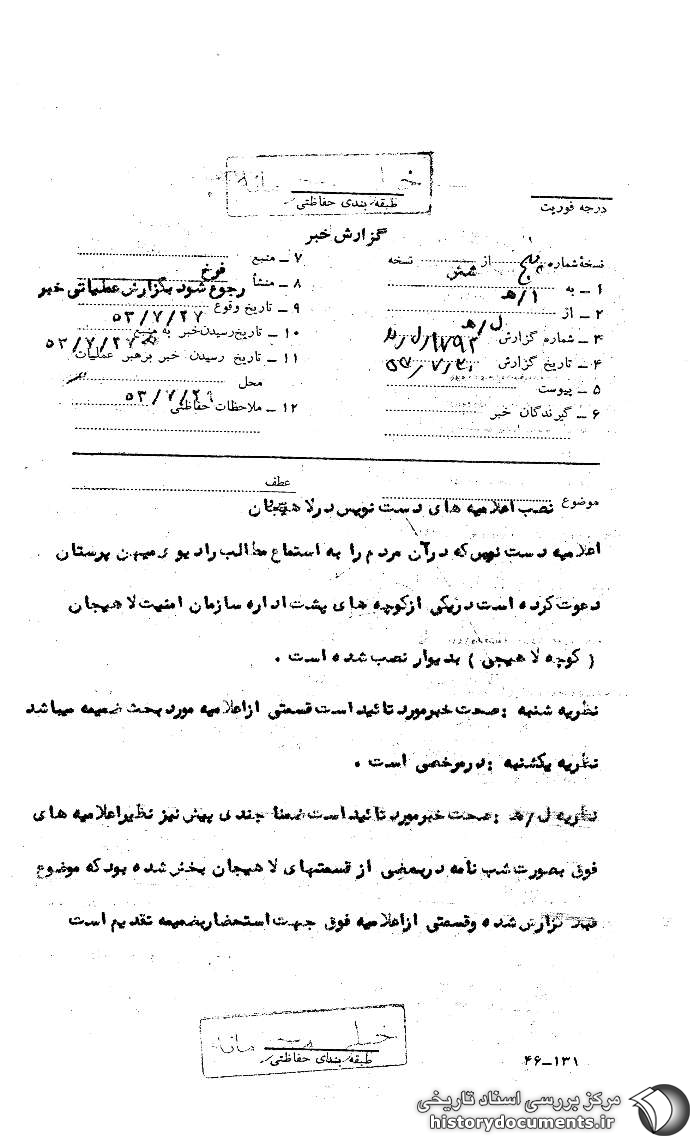 خیلی محرمانه
طبقه بندی حفاظتی
درجه فوریت
گزارش خبر
نسخهٔ شماره پنج از شش نسخه
۱ ـ به ا/ه
۲ ـ از ل/ه
۳ ـ شماره گزارش
۴ ـ تاریخ گزارش
۵ ـ پیوست
۶ ـ گیرندگان خبر
۷ ـ منبع
۸ ـ منشأ فرخ
رجوع شود بگزارش عملیاتی خبر
۹ ـ تاریخ وقوع ۵۳/۷/۲۷
۱۰ ـ تاریخ رسیدن خبر به منبع ۵۳/۷/۲۷
۱۱ ـ تاریخ رسیدن خبر برهبر عملیات
محل ۵۳/۷/۲۹
۱۲ ـ ملاحظات حفاظتی
عطف
موضوع نصب اعلامیه های دست نویس در لاهیجان
اعلامیه دست نویس که در آن مردم را به استماع مطالب رادیوی میهن پرستان
دعوت کرده است در یکی از کوچه های پشت اداره سازمان امنیت لاهیجان
( کوچه لاهیجی ) بدیوار نصب شده است .
نظریه شنبه : صحت خبر مورد تائید است قسمتی از اعلامیه مورد بحث ضمیمه میباشد
نظریه یکشنبه : در مرخصی است .
نظریه ل/ه : صحت خبر مورد تائید است ضمنا چندی پیش نیز نظیر اعلامیه های
فوق بصورت شب نامه در بعضی از قسمتهای لاهیجان پخش شده بود که موضوع
قبلا گزارش شده و قسمتی از اعلامیه فوق جهت استحضار بضمیمه تقدیم است
خیلی محرمانه
طبقه بندی حفاظتی
۴۶-۱۳۱
مرکز بررسی اسناد تاریخی
historydocuments.ir